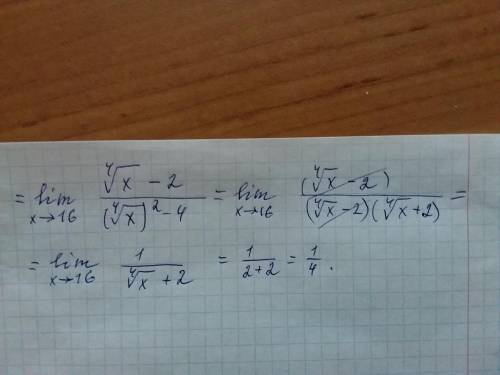 = lim x→16 (∜x − 2)/((∜x)² − 4) = lim x→16 (∜x − 2)/((∜x − 2)(∜x + 2)) =
= lim x→16 1/(∜x + 2) = 1/(2+2) = 1/4.